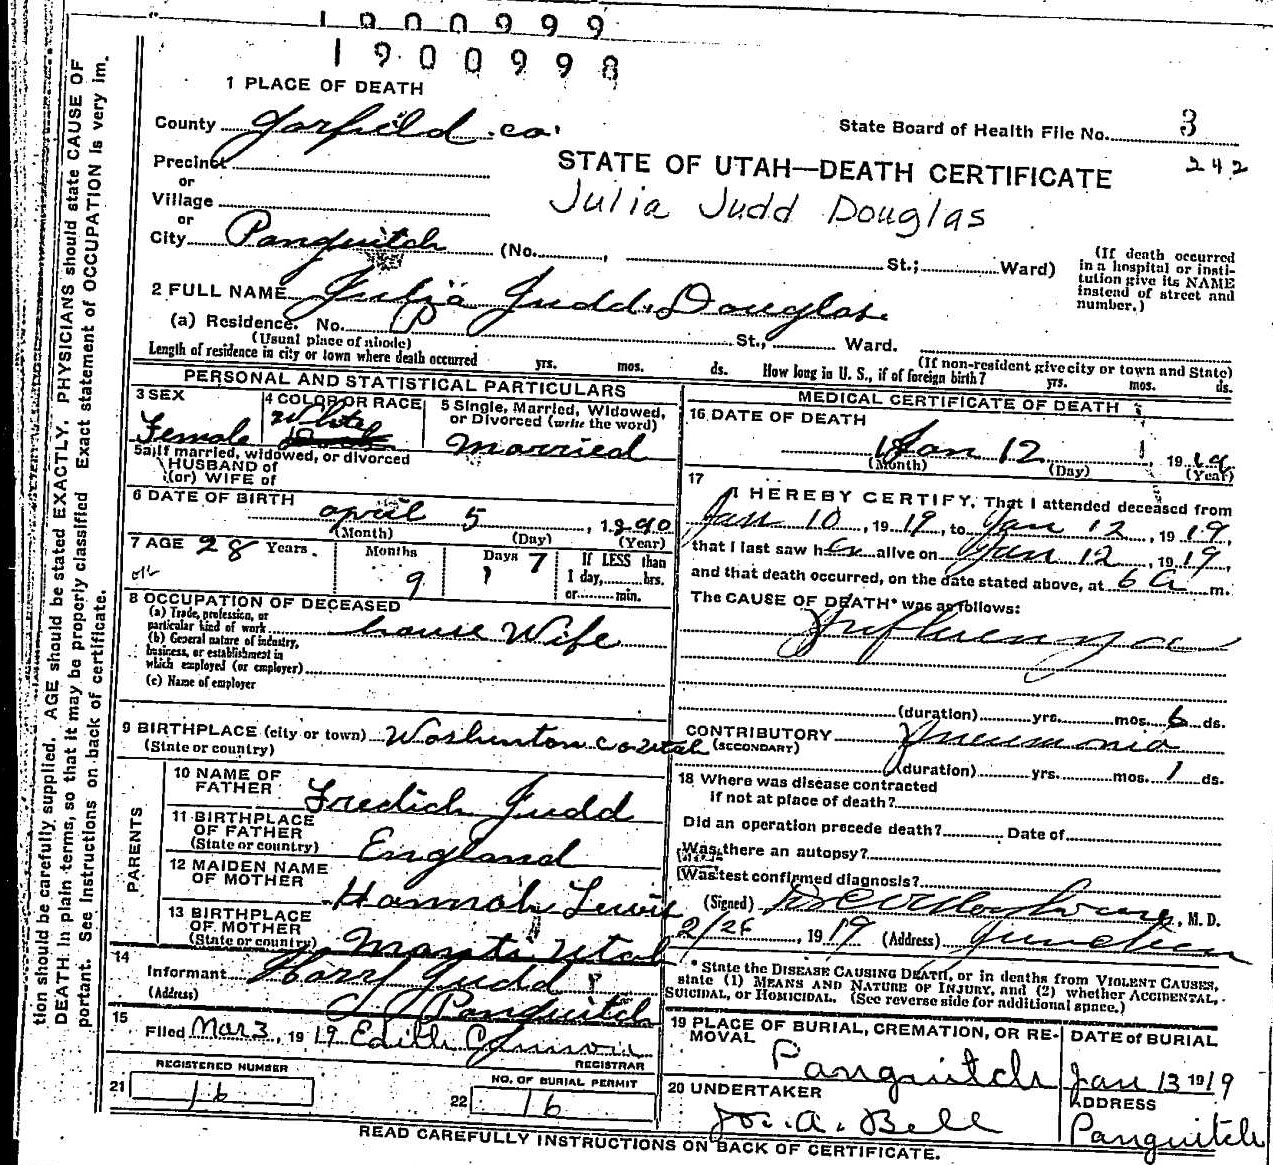 1900999
1900998
1 PLACE OF DEATH
County Garfield co.
State Board of Health File No. 3
242
Precinct
or
Village
or
City Panguitch (No. , St.; Ward)
STATE OF UTAH—DEATH CERTIFICATE
Julia Judd Douglas
(If death occurred in a hospital or insti-
tution give its NAME
instead of street and
number.)
2 FULL NAME Julia Judd Douglas.
(a) Residence. No. St., Ward.
(Usual place of abode) (If non-resident give city or town and State)
Length of residence in city or town where death occurred yrs. mos. ds. How long in U. S., if of foreign birth? yrs. mos. ds.
PERSONAL AND STATISTICAL PARTICULARS
3 SEX
Female
4 COLOR OR RACE
White
5 Single, Married, Widowed,
or Divorced (write the word)
Married
5a If married, widowed, or divorced
HUSBAND of
(or) WIFE of
6 DATE OF BIRTH
april 5, 1890
(Month) (Day) (Year)
7 AGE 28 Years. Months 9 Days 7 If LESS than
1 day, hrs.
or min.
8 OCCUPATION OF DECEASED
(a) Trade, profession, or
particular kind of work house Wife
(b) General nature of industry,
business, or establishment in
which employed (or employer)
(c) Name of employer
9 BIRTHPLACE (city or town) Washinton co Utah
(State or country)
PARENTS
10 NAME OF
FATHER Fredich Judd
11 BIRTHPLACE
OF FATHER
(State or country) England
12 MAIDEN NAME
OF MOTHER Hannah Lewis
13 BIRTHPLACE
OF MOTHER
(State or country) Manti Utah
14
Informant Harry Judd
(Address) Panguitch
15
Filed Mar 3, 1919 Edith
REGISTRAR
REGISTERED NUMBER
21 16
NO. OF BURIAL PERMIT
22 16
MEDICAL CERTIFICATE OF DEATH
16 DATE OF DEATH
Jan 12, 1919
(Month) (Day) (Year)
17
I HEREBY CERTIFY, That I attended deceased from
Jan 10, 1919, to Jan 12 1919,
that I last saw her alive on Jan 12, 1919,
and that death occurred, on the date stated above, at 6 a m.
The CAUSE OF DEATH* was as follows:
Influenza
(duration) yrs. mos. 6 ds.
CONTRIBUTORY Pneumonia
(SECONDARY)
(duration) yrs. mos. 1 ds.
18 Where was disease contracted
if not at place of death?
Did an operation precede death? Date of
Was there an autopsy?
Was test confirmed diagnosis?
(Signed) , M. D.
2/26, 1919 (Address) Junction
* State the DISEASE CAUSING DEATH, or in deaths from VIOLENT CAUSES,
state (1) MEANS AND NATURE OF INJURY, and (2) whether ACCIDENTAL,
SUICIDAL, or HOMICIDAL. (See reverse side for additional space.)
19 PLACE OF BURIAL, CREMATION, OR RE-
MOVAL
Panguitch
DATE of BURIAL
Jan 13 1919
20 UNDERTAKER
Jos. A. Bell
ADDRESS
Panguitch
READ CAREFULLY INSTRUCTIONS ON BACK OF CERTIFICATE.
tion should be carefully supplied. AGE should be stated EXACTLY. PHYSICIANS should state CAUSE OF
DEATH in plain terms, so that it may be properly classified Exact statement of OCCUPATION is very im.
portant. See Instructions on back of certificate.